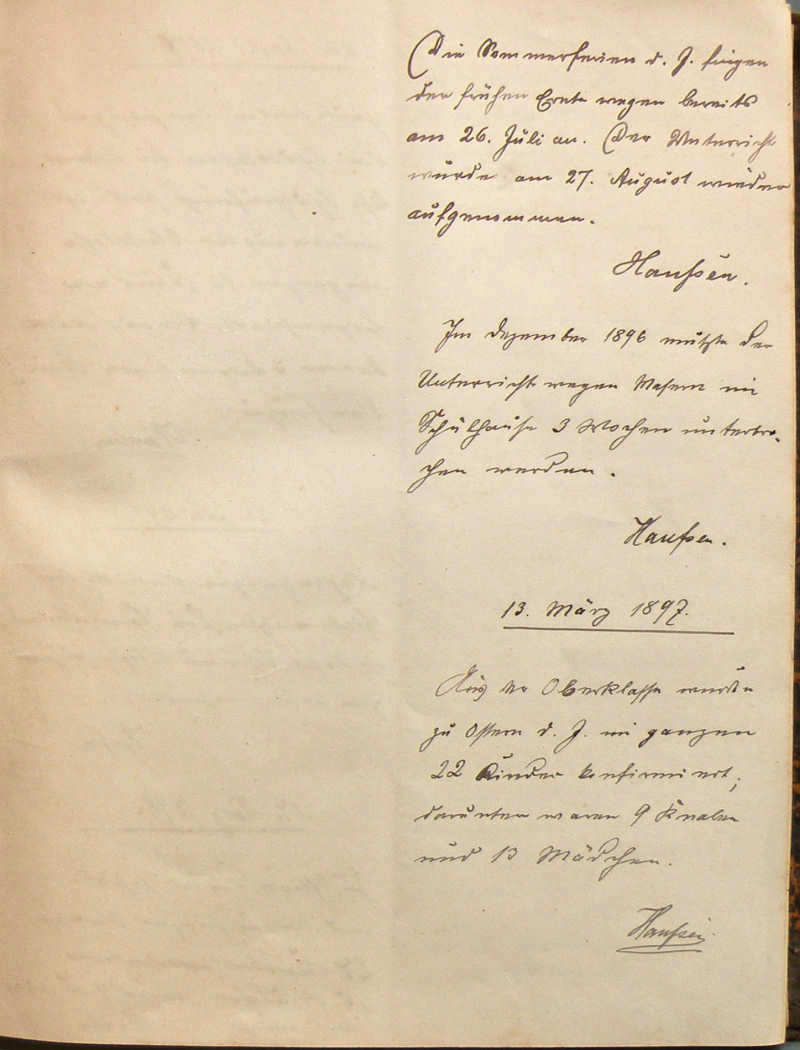 Die Sommerferien d. J. fingen
der frühen Ernte wegen bereits
am 26. Juli an. Der Unterricht
wurde am 27. August wieder
aufgenommen.
Hanssen.
Im Dezember 1896 mußte der
Unterricht wegen Masern im
Schulhause 3 Wochen unterbro-
chen werden.
Hanssen.
13. März 1897.
Aus der Oberklasse wurden
zu Ostern d. J. im ganzen
22 Kinder konfirmiert;
darunter waren 9 Knaben
und 13 Mädchen.
Hanssen.